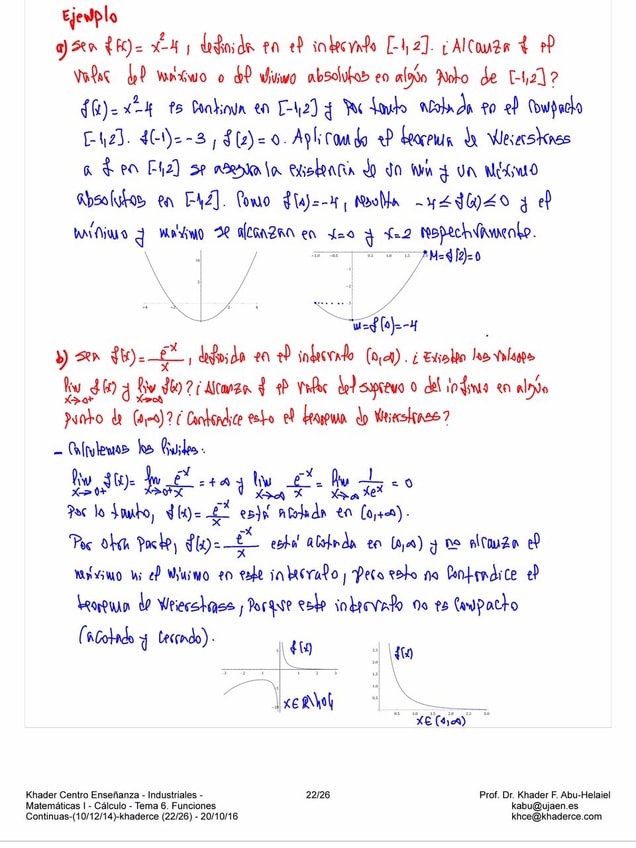 Ejemplo
a) Sea f(x) = x²-4, definida en el intervalo [-1,2]. ¿Alcanza f el
valor del máximo o del mínimo absolutos en algún punto de [-1,2]?
f(x) = x²-4 es continua en [-1,2] y por tanto acotada en el compacto
[-1,2]. f(-1) = -3, f(2) = 0. Aplicando el teorema de Weierstrass
a f en [-1,2] se asegura la existencia de un mín y un máximo
absolutos en [-1,2]. Como f(0) = -4, resulta -4 ≤ f(x) ≤ 0 y el
mínimo y máximo se alcanzan en x=0 y x=2 respectivamente.
M=f(2)=0
m=f(0)=-4
b) Sea f(x) = e^-x/x, definida en el intervalo (0,∞). ¿Existen los valores
lim x→0+ f(x) y lim x→∞ f(x)? ¿Alcanza f el valor del supremo o del ínfimo en algún
punto de (0,∞)? ¿Contradice esto el teorema de Weierstrass?
- Calculemos los límites:
lim x→0+ f(x) = lim x→0+ e^-x/x = +∞ y lim x→∞ e^-x/x = lim x→∞ 1/xe^x = 0
Por lo tanto, f(x) = e^-x/x está acotada en (0,+∞).
Por otra parte, f(x) = e^-x/x está acotada en (0,∞) y no alcanza el
máximo ni el mínimo en este intervalo, pero esto no contradice el
teorema de Weierstrass, porque este intervalo no es compacto
(acotado y cerrado).
f(x)
x∈ℝ\{0}
f(x)
x∈(0,∞)
Khader Centro Enseñanza - Industriales -
Matemáticas I - Cálculo - Tema 6. Funciones
Continuas-(10/12/14)-khaderce (22/26) - 20/10/16
22/26
Prof. Dr. Khader F. Abu-Helaiel
kabu@ujaen.es
khce@khaderce.com